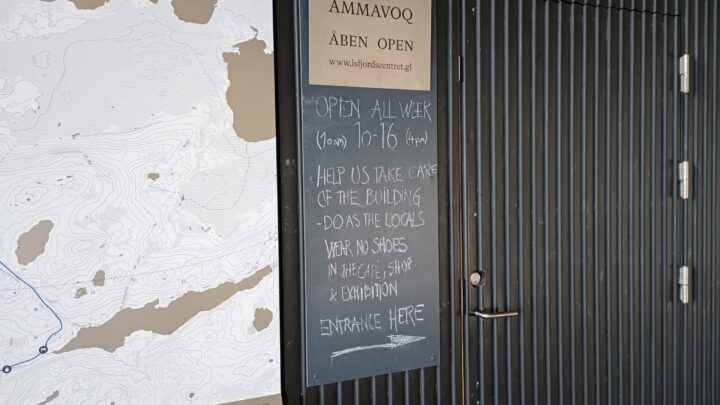 AMMAVOQ
ÅBEN OPEN
www.isfjordscentret.gl
OPEN ALL WEEK
(10am) 10-16 (4pm)
HELP US TAKE CARE
OF THE BUILDING
- DO AS THE LOCALS
WEAR NO SHOES
IN THE CAFE, SHOP
& EXHIBITION
ENTRANCE HERE